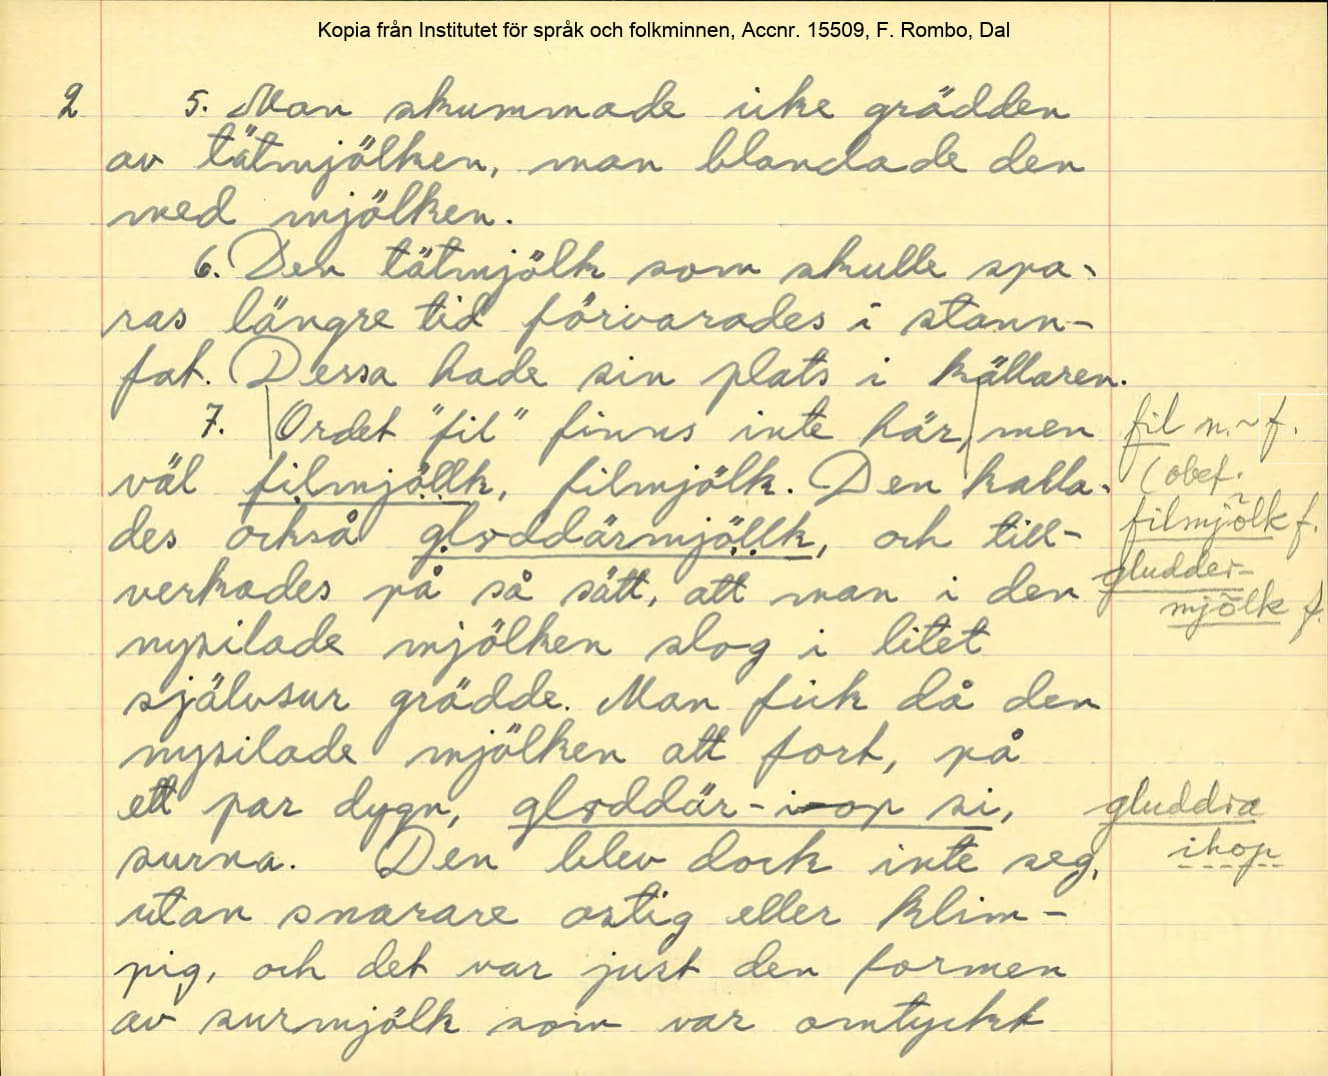 Kopia från Institutet för språk och folkminnen, Accnr. 15509, F. Rombo, Dal
2 5. Man skummade icke grädden
av tätmjölken, man blandade den
med mjölken.
6. Den tätmjölk som skulle spa-
ras längre tid förvarades i stann-
fat. Dessa hade sin plats i källaren.
7. Ordet "fil" finns inte här, men
väl filmjöllk, filmjölk. Den kalla-
des också gloddärmjöllk, och till-
verkades på så sätt, att man i den
nysilade mjölken slog i litet
självsur grädde. Man fick då den
nysilade mjölken att fort, på
ett par dygn, gloddär-i-op si,
surna. Den blev dock inte seg,
utan snarare ostig eller klim-
pig, och det var just den formen
av surmjölk som var omtyckt
fil n.~f.
(obef.
filmjölk f.
gludder-
mjölk f.
gluddra
ihop